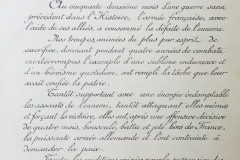 Au cinquante deuxième mois d'une guerre sans
précédent dans l'Histoire, l'armée française, avec
l'aide de ses alliés, a consommé la défaite de l'ennemi.
Nos troupes animées du plus pur esprit de
sacrifice, donnant pendant quatre années de combats
ininterrompus l'exemple d'une sublime endurance et
d'un héroïsme quotidien, ont rempli la tâche que leur
avait confiée la patrie.
Tantôt supportant avec une énergie indomptable
les assauts de l'ennemi, tantôt attaquant elles mêmes
et forçant la victoire, elles ont, après une offensive décisive
de quatre mois, bousculé, battu et jeté hors de France,
la puissante armée allemande et l'ont contrainte à
demander la paix.
Toutes les conditions